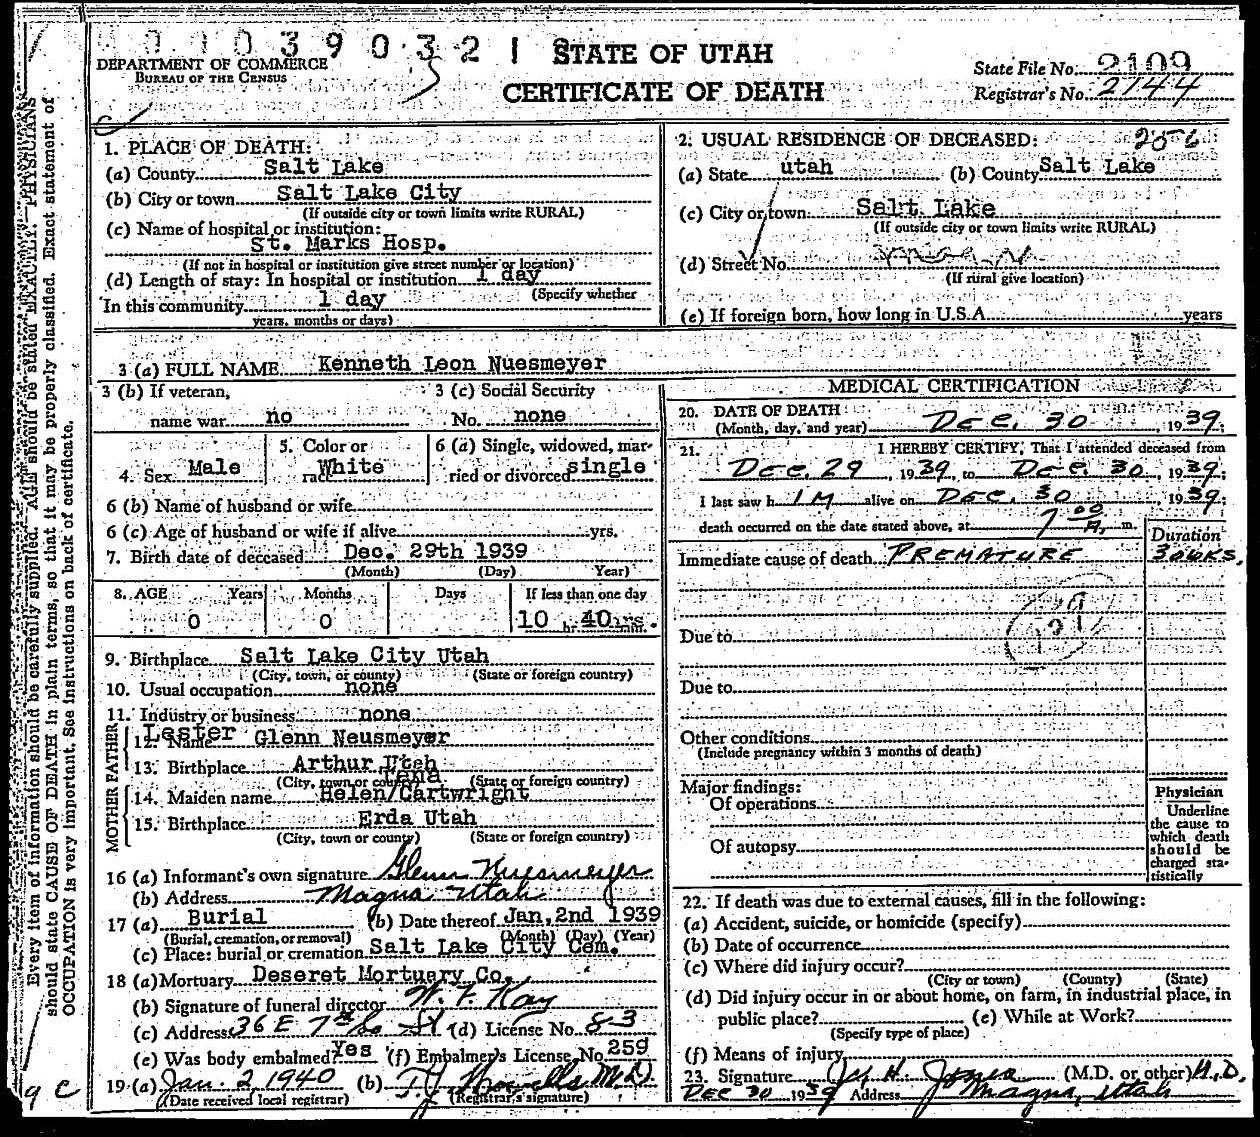 0 0 0 3 9 0 3 2 1
STATE OF UTAH
CERTIFICATE OF DEATH
DEPARTMENT OF COMMERCE
BUREAU OF THE CENSUS
State File No. 2109
Registrar's No. 2144
Every item of information should be carefully supplied. AGE should be stated EXACTLY. PHYSICIANS
should state CAUSE OF DEATH in plain terms, so that it may be properly classified. Exact statement of
OCCUPATION is very important. See instructions on back of certificate.
1. PLACE OF DEATH:
(a) County Salt Lake
(b) City or town Salt Lake City
(If outside city or town limits write RURAL)
(c) Name of hospital or institution:
St. Marks Hosp.
(If not in hospital or institution give street number or location)
(d) Length of stay: In hospital or institution 1 day
(Specify whether
In this community 1 day
years, months or days)
2. USUAL RESIDENCE OF DECEASED: 256
(a) State utah (b) County Salt Lake
(c) City or town: Salt Lake
(If outside city or town limits write RURAL)
(d) Street No.
(If rural give location)
(e) If foreign born, how long in U.S.A. years
3 (a) FULL NAME Kenneth Leon Nuesmeyer
3 (b) If veteran, 3 (c) Social Security
name war no No. none
4. Sex Male 5. Color or race White 6 (a) Single, widowed, married or divorced single
6 (b) Name of husband or wife
6 (c) Age of husband or wife if alive yrs.
7. Birth date of deceased Dec. 29th 1939
(Month) (Day) Year)
8. AGE Years Months Days If less than one day
0 0 10 hr. 40 min.
9. Birthplace Salt Lake City Utah
(City, town, or county) (State or foreign country)
10. Usual occupation none
11. Industry or business none
FATHER
12. Name Lester Glenn Neusmeyer
13. Birthplace Arthur Utah
(City, town or county) (State or foreign country)
MOTHER
14. Maiden name Helen/Lena Cartwright
15. Birthplace Erda Utah
(City, town or county) (State or foreign country)
16 (a) Informant's own signature Glenn Nuesmeyer
(b) Address Magna Utah
17 (a) Burial (b) Date thereof Jan. 2nd 1939
(Burial, cremation, or removal) (Month) (Day) (Year)
(c) Place: burial or cremation Salt Lake City Cem.
18 (a) Mortuary Deseret Mortuary Co.
(b) Signature of funeral director W. F. Kay
(c) Address 36 E 7th So St. (d) License No. 83
(e) Was body embalmed? Yes (f) Embalmer's License No. 259
19 (a) Jan. 2, 1940 (b) T. J. Howells M.D.
(Date received local registrar) (Registrar's signature)
9 C
MEDICAL CERTIFICATION
20. DATE OF DEATH
(Month, day, and year) DEC. 30, 1939;
21. I HEREBY CERTIFY, That I attended deceased from
DEC. 29, 1939, to DEC. 30, 1939;
I last saw h IM alive on DEC. 30, 1939;
death occurred on the date stated above, at 7 00 A. m.
Duration
Immediate cause of death PREMATURE 30 WKS.
Due to
Due to
Other conditions
(Include pregnancy within 3 months of death)
Major findings:
Of operations
Of autopsy
Physician
Underline
the cause to
which death
should be
charged sta-
tistically
22. If death was due to external causes, fill in the following:
(a) Accident, suicide, or homicide (specify)
(b) Date of occurrence
(c) Where did injury occur?
(City or town) (County) (State)
(d) Did injury occur in or about home, on farm, in industrial place, in
public place? (e) While at Work?
(Specify type of place)
(f) Means of injury
23. Signature H. Jones (M.D. or other) M.D.
DEC 30 1939 Address Magna, Utah